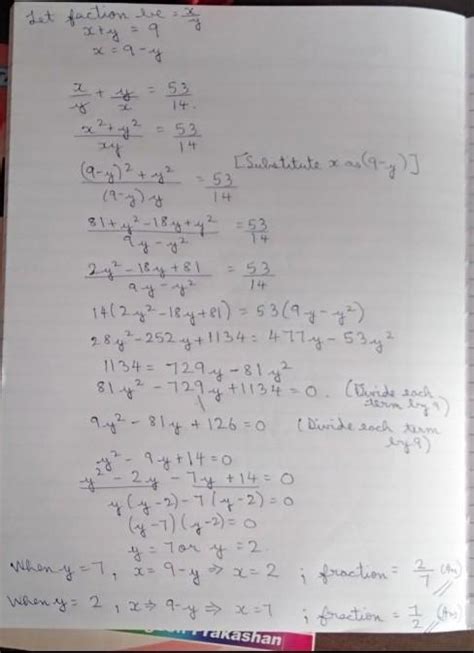 Let faction be = x/y
x+y = 9
x = 9-y
x/y + y/x = 53/14.
x²+y²/xy = 53/14
[Substitute x as (9-y)]
(9-y)² + y²/(9-y)y = 53/14
81+y²-18y+y²/9y-y² = 53/14
2y²-18y+81/9y-y² = 53/14
14(2y²-18y+81) = 53(9y-y²)
28y²-252y+1134 = 477y-53y²
1134 = 729y-81y²
81y²-729y+1134 = 0. (Divide each term by 9)
9y²-81y+126 = 0 (Divide each term by 9)
y²-9y+14 = 0
y²-2y-7y+14 = 0
y(y-2)-7(y-2) = 0
(y-7)(y-2) = 0
y = 7 or y = 2.
When y = 7, x = 9-y ⇒ x = 2 ; fraction = 2/7 (Ans)
When y = 2, x ⇒ 9-y ⇒ x = 7 ; fraction = 1/2 (Ans)
Prakashan